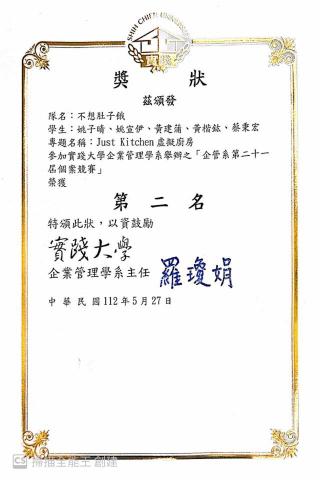 SHIH CHIEN UNIVERSITY
實踐
獎狀
茲頒發
隊名：不想肚子餓
學生：姚子晴、姚宣伊、黃建蒲、黃楷鈜、蔡秉宏
專題名稱：Just Kitchen 虛擬廚房
參加實踐大學企業管理學系舉辦之「企管系第二十一
屆個案競賽」
榮獲
第二名
特頒此狀，以資鼓勵
實踐大學
企業管理學系主任 羅瓊娟
中華民國112年5月27日
CS 掃描全能王 創建